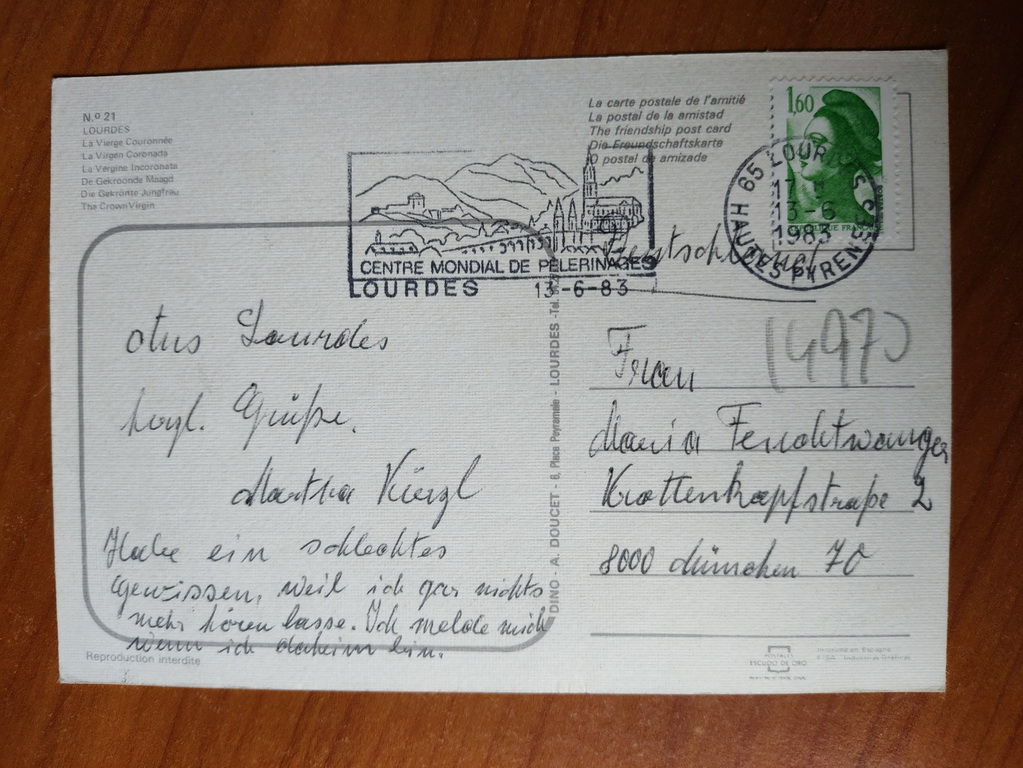 N.º 21
LOURDES
La Vierge Couronnée
La Virgen Coronada
La Vergine Incoronata
De Gekroonde Maagd
Die Gekrönte Jungfrau
The Crown Virgin
La carte postale de l'amitié
La postal de la amistad
The friendship post card
Die Freundschaftskarte
O postal de amizade
1,60
REPUBLIQUE FRANÇAISE
65 LOURDES
13-6
1983
HAUTES PYRENEES
CENTRE MONDIAL DE PELERINAGES
LOURDES 13-6-83
Deutschland
aus Lourdes
herzl. Grüße.
Martha Künzl
Habe ein schlechtes
Gewissen, weil ich gar nichts
mehr hören lasse. Ich melde mich
wenn ich daheim bin.
Reproduction interdite
DINO - A. DOUCET - 6, Place Peyramale - LOURDES - Tel.
Frau
Maria Feuchtwanger
Krottenkopfstraße 2
8000 München 70
POSTALES
ESCUDO DE ORO